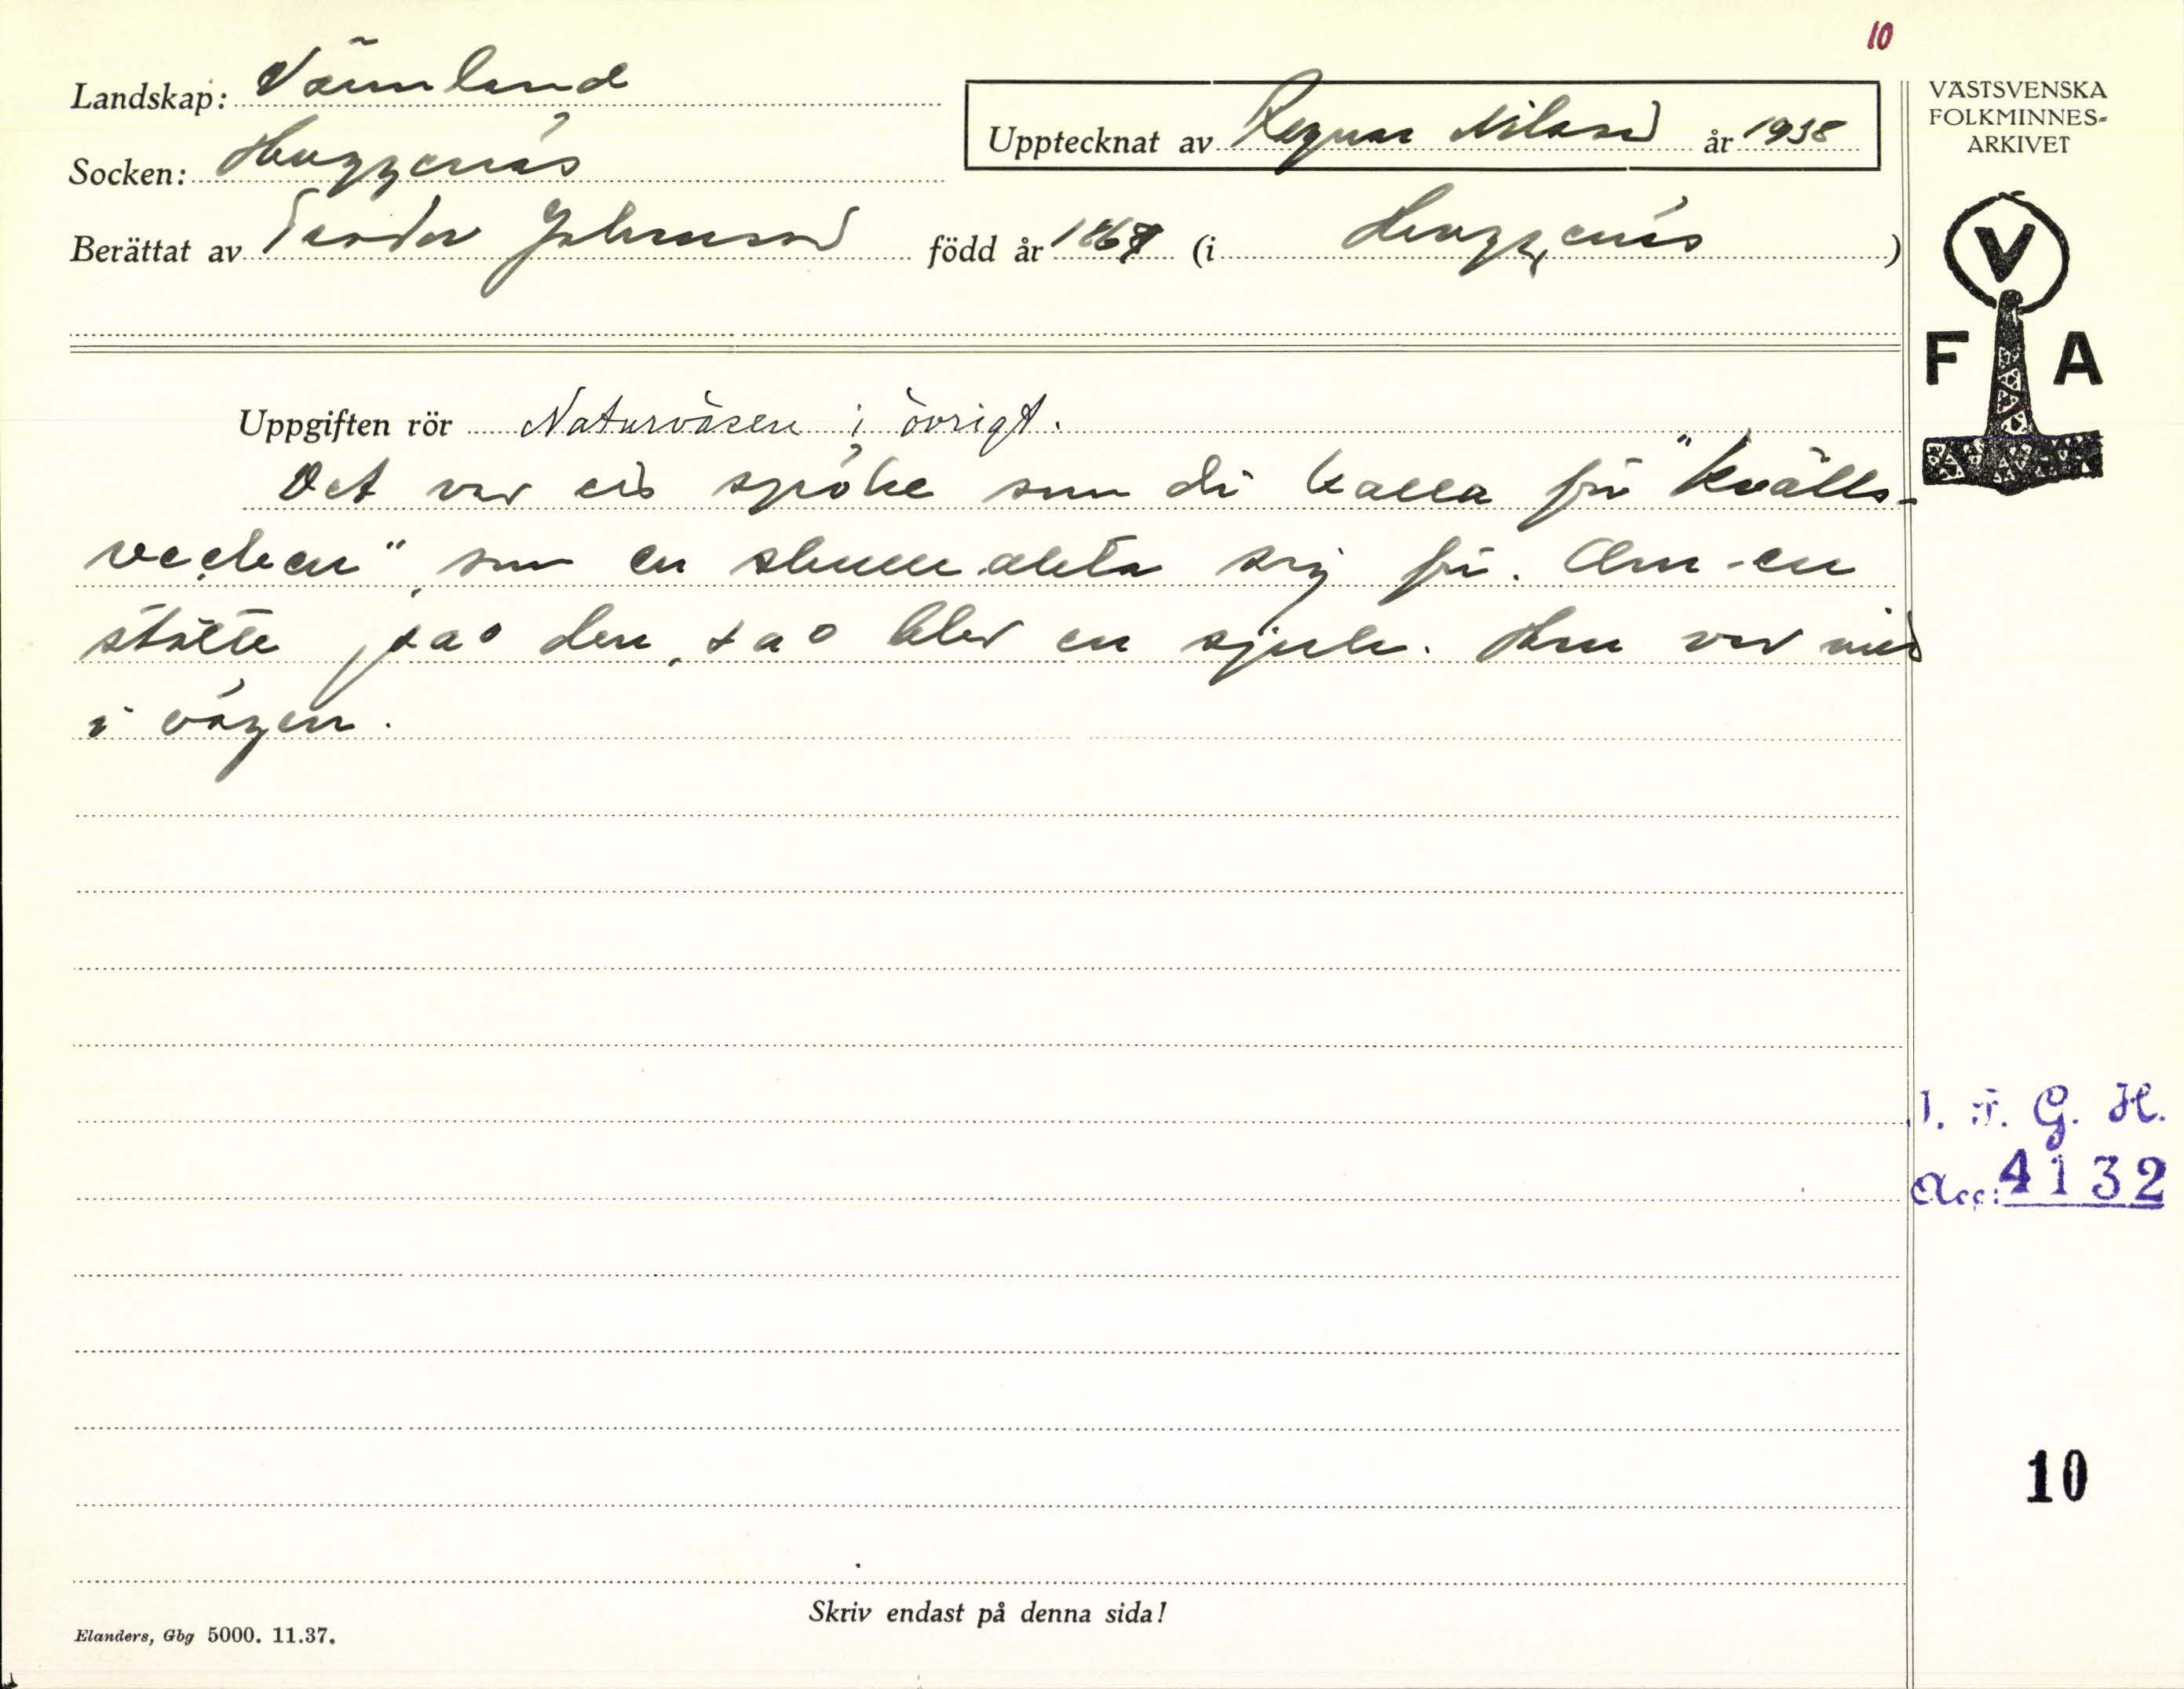 10
Landskap: Värmland
Socken: Huggenäs
Upptecknat av Ragnar Nilsson år 1938
Berättat av Teodor Johansson född år 1867 (i Huggenäs)
VÄSTSVENSKA
FOLKMINNES-
ARKIVET
V
F A
Uppgiften rör Naturväsen i övrigt.
Det var ett spöke som di kalla för "kvälls-
vecken" som en skulle akta sig för. Om en
stötte på den, så blev en sjuk. Hon var med
i vägen.
I. F. G. H.
Acc: 4132
10
Skriv endast på denna sida!
Elanders, Gbg 5000. 11.37.